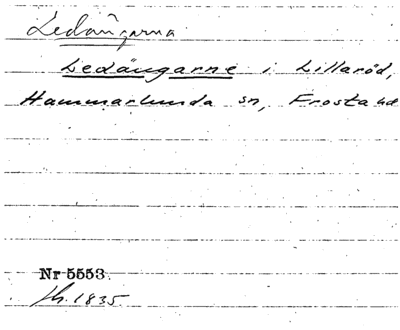 Ledängarna
Ledängarne i Lillaröd,
Hammarlunda sn, Frosta hd
Nr 5553.
sk. 1835